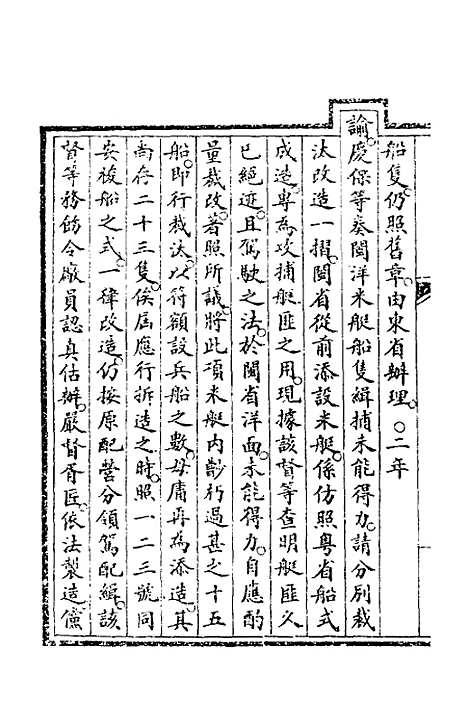 船隻。仍照舊章。由東省辦理。○二年
諭。慶保等奏閩洋米艇船隻緝捕未能得力。請分別裁
汰改造一摺。閩省從前添設米艇。係仿照粵省船式
成造。專為攻捕艇匪之用。現據該督等查明艇匪久
已絕迹。且駕駛之法。於閩省洋面。未能得力。自應酌
量裁改。著照所議。將此項米艇內。㓺朽過甚之十五
船。即行裁汰。以符額設兵船之數。毋庸再為添造。其
尚存二十三隻。俟屆應行拆造之時。照一二三號同
安梭船之式。一律改造。仍按原配營分領駕配緝。該
督等務飭令廠員認真估辦。嚴督胥匠。依法製造。儻